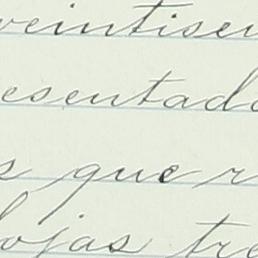 veintisei
esentado
s que r
hojas tre